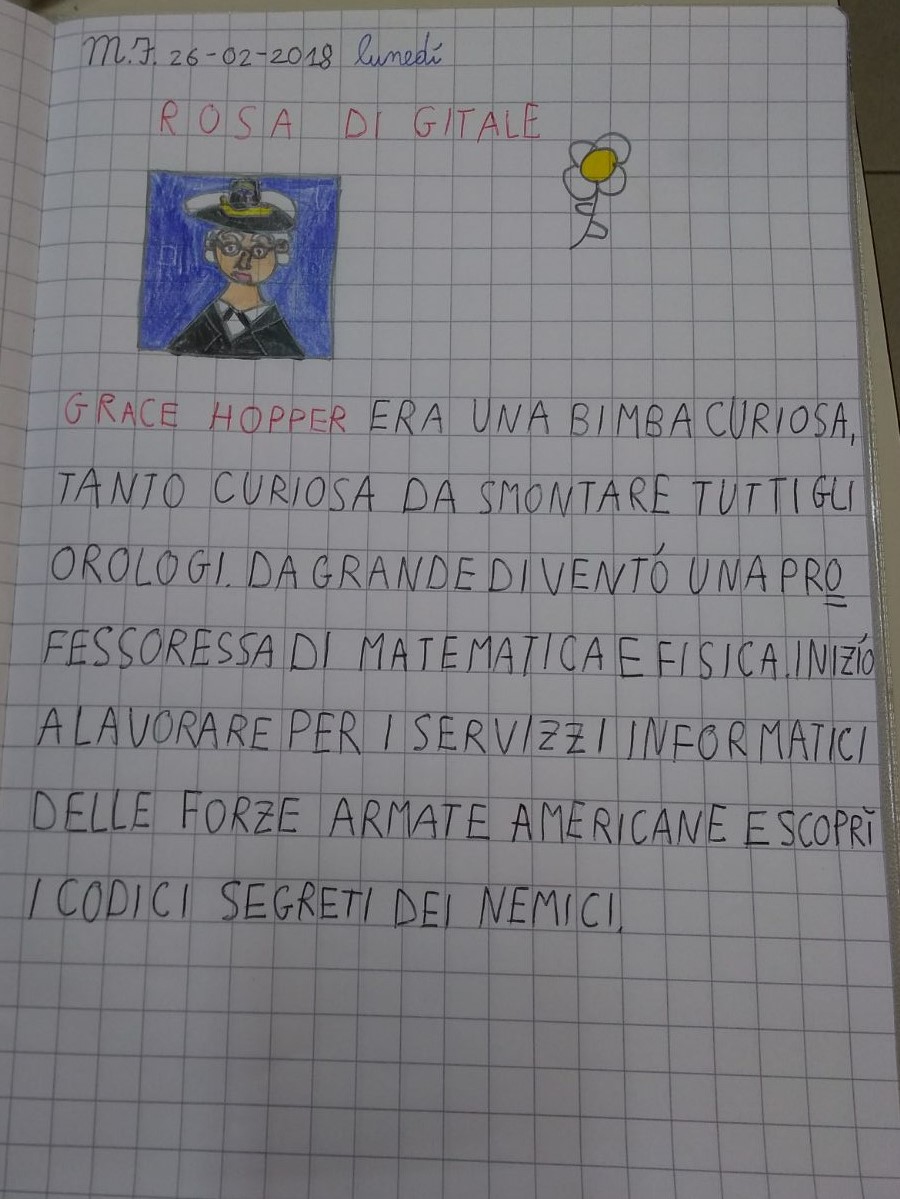 M.F. 26-02-2018 lunedí
ROSA DI GITALE
GRACE HOPPER ERA UNA BIMBA CURIOSA,
TANTO CURIOSA DA SMONTARE TUTTI GLI
OROLOGI. DA GRANDE DIVENTÓ UNA PRO
FESSORESSA DI MATEMATICA E FISICA. INIZÍO
A LAVORARE PER I SERVIZZI INFORMATICI
DELLE FORZE ARMATE AMERICANE E SCOPRÌ
I CODICI SEGRETI DEI NEMICI.